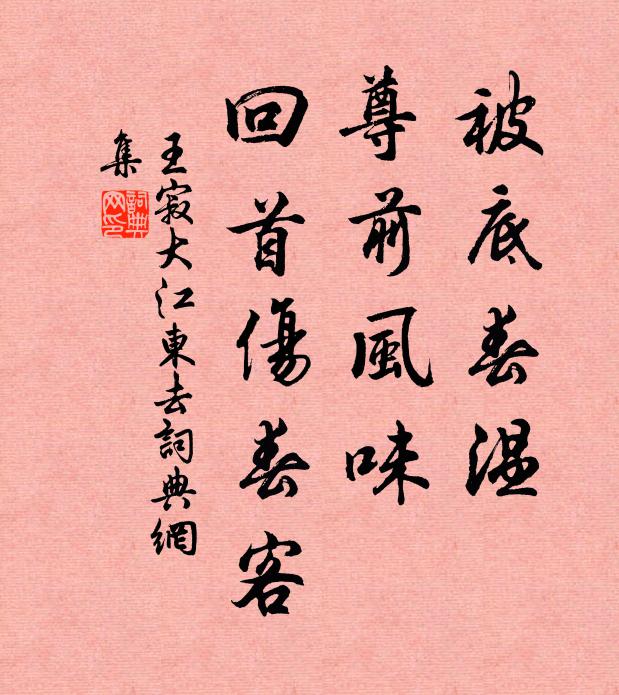 被底春溫
尊前風味
回首傷春客
王寂大江東去詞典網
集
詞典
网印